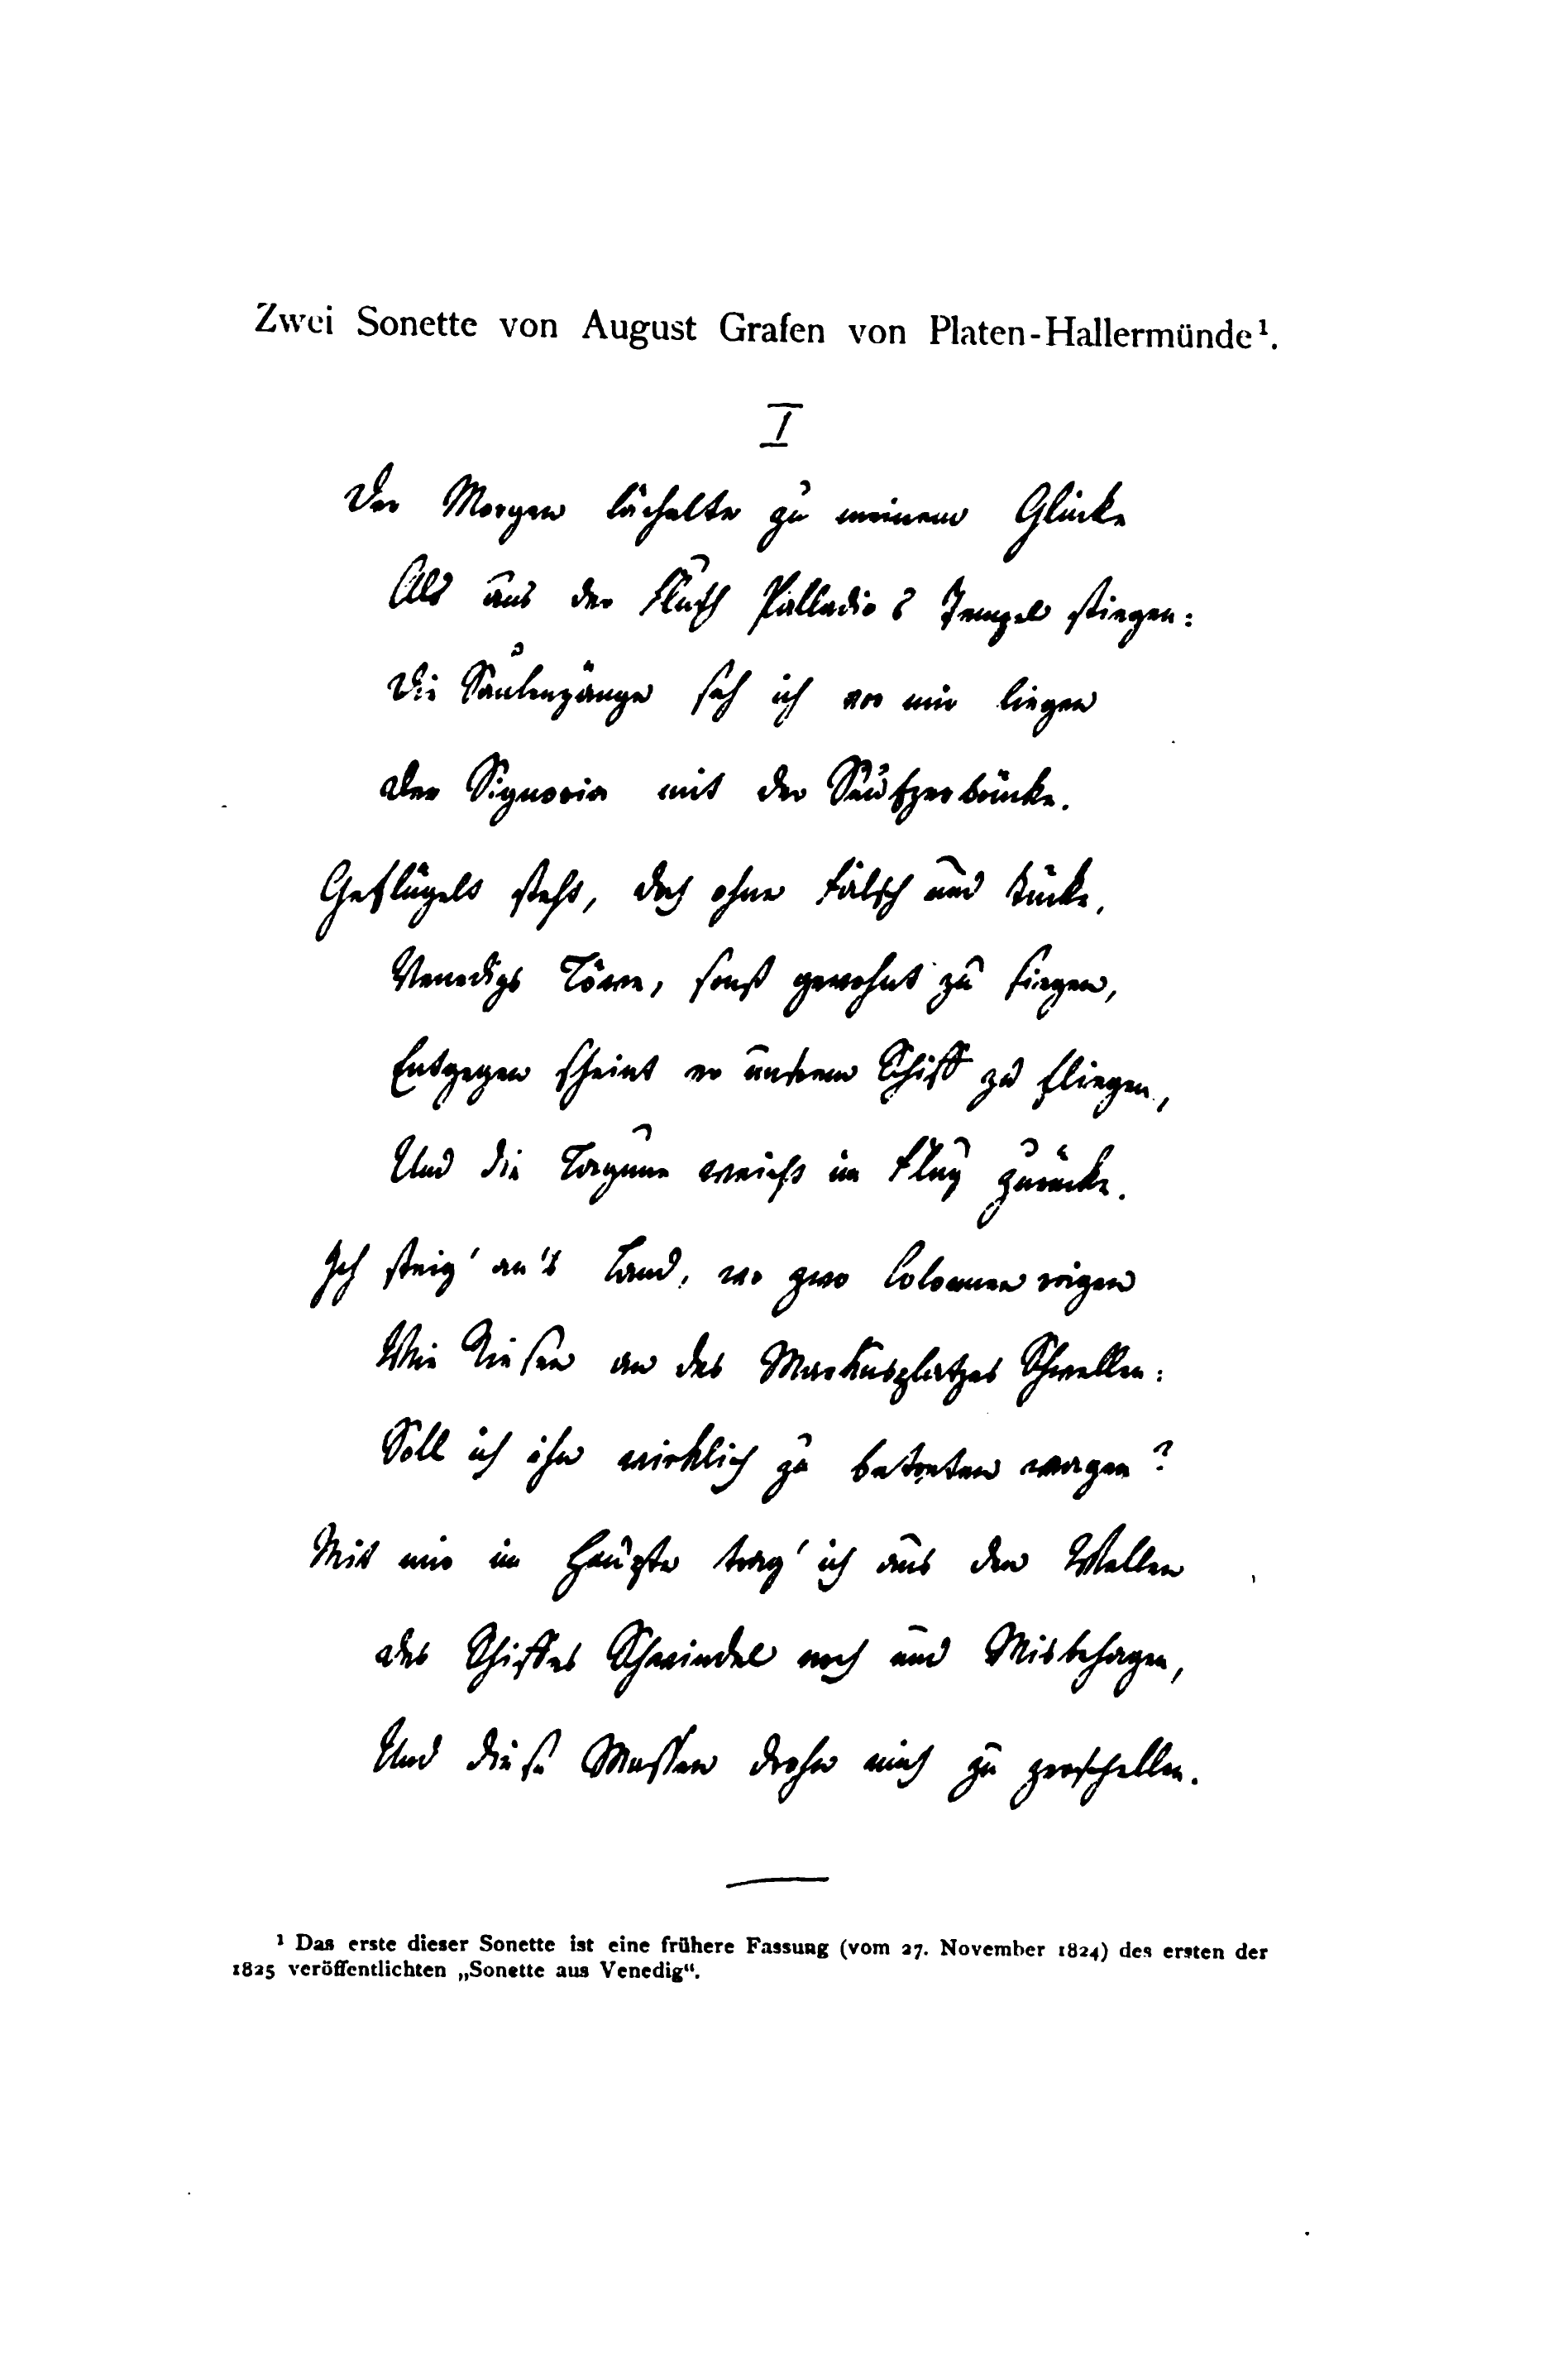 Zwei Sonette von August Grafen von Platen-Hallermünde¹.
I
Der Morgen lächelte zu meinem Glücke
Als aus der Fluth Palladio's Tempel stiegen:
Die Säulengänge sah ich vor mir liegen
Der Signoria mit der Seufzerbrücke.
Geflügelt steht, doch ohne Falsch und Tücke,
Venedigs Löwe, sonst gewohnt zu siegen,
Entgegen scheint er unserm Schiff zu fliegen,
Und die Lagune weicht im Flug zurücke.
Ich steig' an's Land, wo zwo Colonnen ragen
Wie Riesen an des Markusplatzes Schwellen:
Soll ich ihn wirklich zu betreten wagen?
Mit mir im Haupte trag' ich aus den Wellen
Des Schiffes Schwindel noch und Misbehagen,
Und diese Massen drohn mich zu zerschellen.
¹ Das erste dieser Sonette ist eine frühere Fassung (vom 27. November 1824) des ersten der
1825 veröffentlichten „Sonette aus Venedig“.